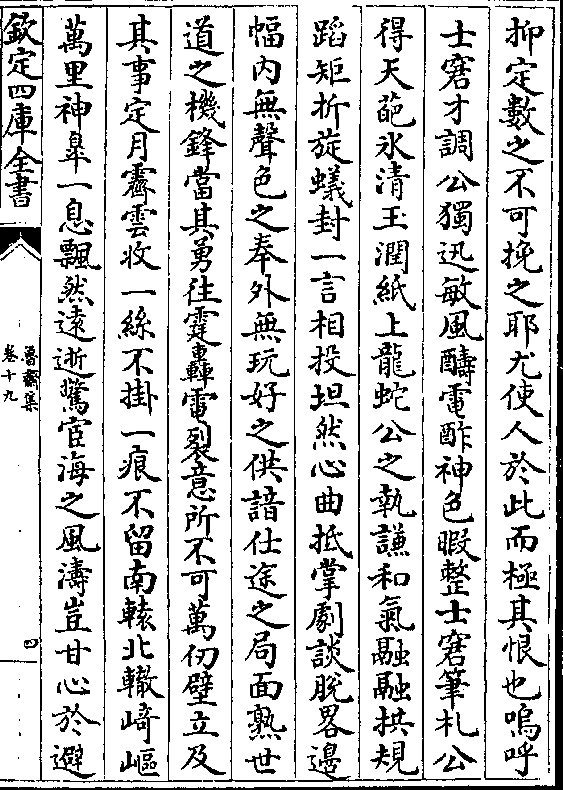 抑定數之不可挽之耶尤使人於此而極其恨也嗚呼
士窘才調公獨迅敏風醻電酢神色暇整士窘筆札公
得天葩氷清玉潤紙上龍蛇公之執謙和氣融融拱規
蹈矩折旋蟻封一言相投坦然心曲抵掌劇談脫畧邊
幅内無聲色之奉外無玩好之供諳仕途之局面熟世
道之機鋒當其勇往霆轟電裂意所不可萬仞壁立及
其事定月霽雲收一絲不掛一痕不留南轅北轍﨑嶇
萬里神皐一息飄然遠逝驚宦海之風濤豈甘心於避
欽定四庫全書
魯齋集
卷十九
四